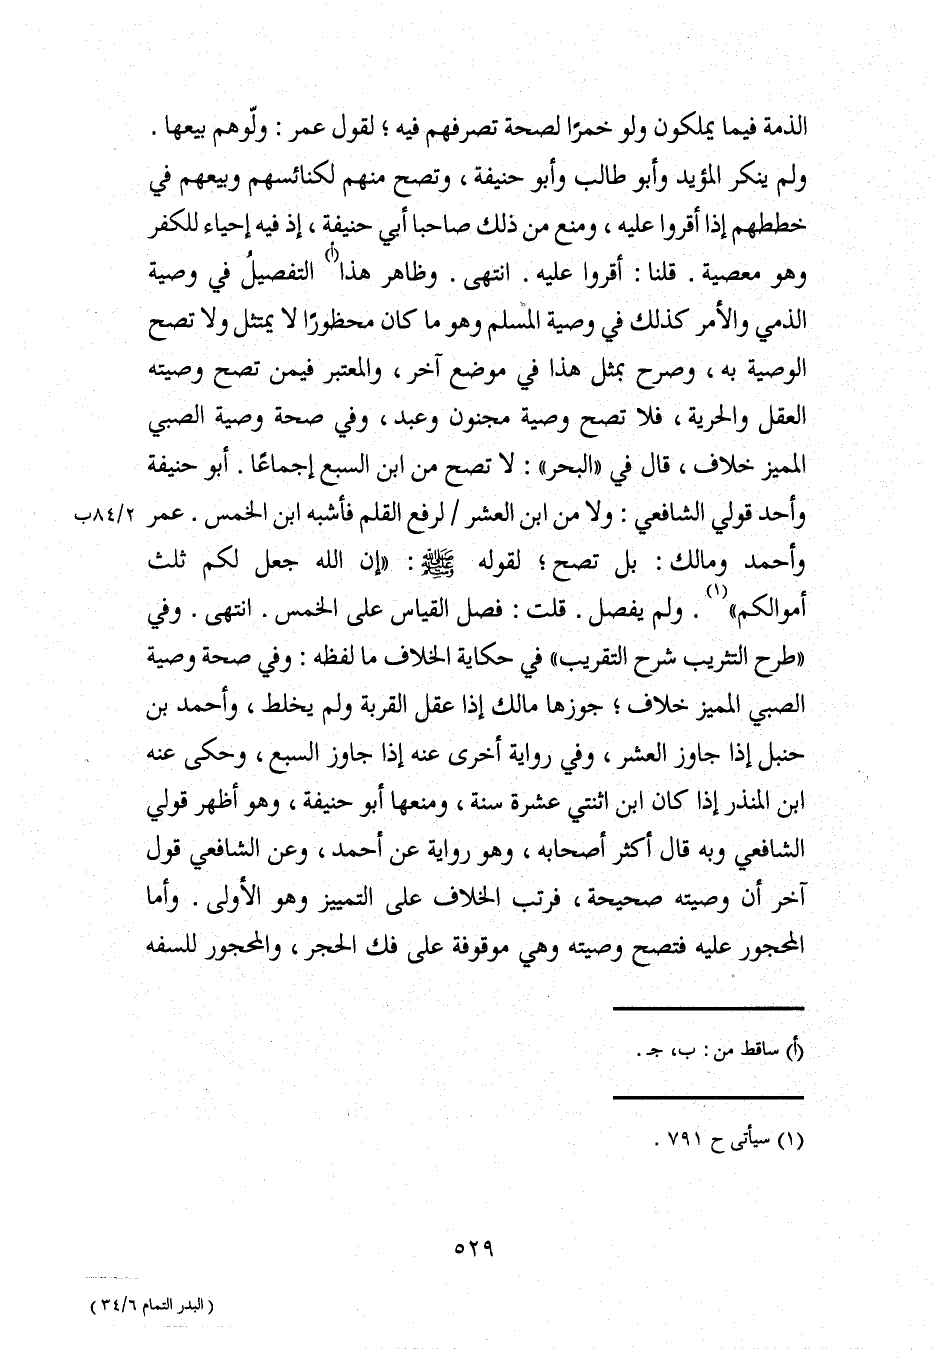 الذمة فيما يملكون ولو خمرًا لصحة تصرفهم فيه ؛ لقول عمر : ولّوهم بيعها .
ولم ينكر المؤيد وأبو طالب وأبو حنيفة ، وتصح منهم لكنائسهم وبيعهم في
خططهم إذا أقروا عليه ، ومنع من ذلك صاحبا أبي حنيفة ، إذ فيه إحياء للكفر
وهو معصية . قلنا : أقروا عليه . انتهى . وظاهر هذا(أ) التفصيلُ في وصية
الذمي والأمر كذلك في وصية المسلم وهو ما كان محظورًا لا يمتثل ولا تصح
الوصية به ، وصرح بمثل هذا في موضع آخر ، والمعتبر فيمن تصح وصيته
العقل والحرية ، فلا تصح وصية مجنون وعبد ، وفي صحة وصية الصبي
المميز خلاف ، قال في «البحر» : لا تصح من ابن السبع إجماعًا . أبو حنيفة
وأحد قولي الشافعي : ولا من ابن العشر / لرفع القلم فأشبه ابن الخمس . عمر ٨٤/٢ب
وأحمد ومالك : بل تصح ؛ لقوله ﷺ : «إن الله جعل لكم ثلث
أموالكم»(١) . ولم يفصل . قلت : فصل القياس على الخمس . انتهى . وفي
«طرح التثريب شرح التقريب» في حكاية الخلاف ما لفظه : وفي صحة وصية
الصبي المميز خلاف ؛ جوزها مالك إذا عقل القربة ولم يخلط ، وأحمد بن
حنبل إذا جاوز العشر ، وفي رواية أخرى عنه إذا جاوز السبع ، وحكى عنه
ابن المنذر إذا كان ابن اثنتي عشرة سنة ، ومنعها أبو حنيفة ، وهو أظهر قولي
الشافعي وبه قال أكثر أصحابه ، وهو رواية عن أحمد ، وعن الشافعي قول
آخر أن وصيته صحيحة ، فرتب الخلاف على التمييز وهو الأولى . وأما
المحجور عليه فتصح وصيته وهي موقوفة على فك الحجر ، والمحجور للسفه
(أ) ساقط من : ب ، جـ .
(١) سيأتى ح ٧٩١ .
٥٢٩
( البدر التمام ٣٤/٦ )